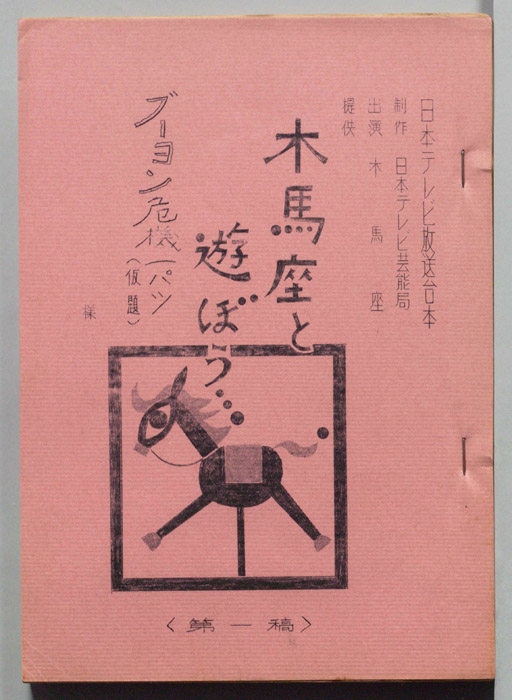 日本テレビ放送台本
制作 日本テレビ芸能局
出演 木馬座
提供
木馬座と
遊ぼう…
ブーヨン危機一パツ
(仮題)
様
〈第一稿〉